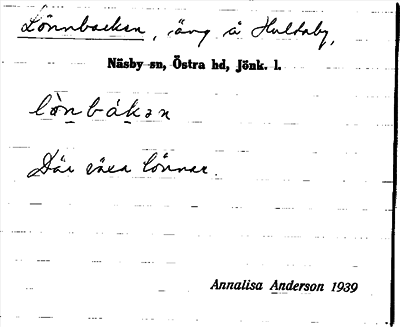 Lönnbacken, äng å Hultaby,
Näsby sn, Östra hd, Jönk. l.
lö̀nbákən
Där växa lönnar.
Annalisa Anderson 1939